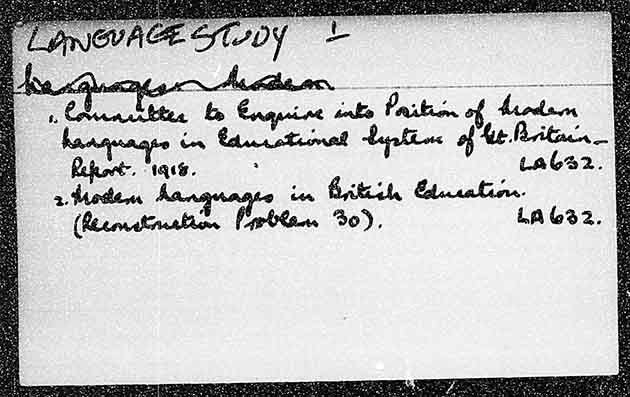 LANGUAGE STUDY 1
Languages, Modern
1. Committee to Enquire into Position of Modern
Languages in Educational System of Gt. Britain –
Report. 1918. LA632.
2. Modern Languages in British Education.
(Reconstruction Problem 30). LA632.